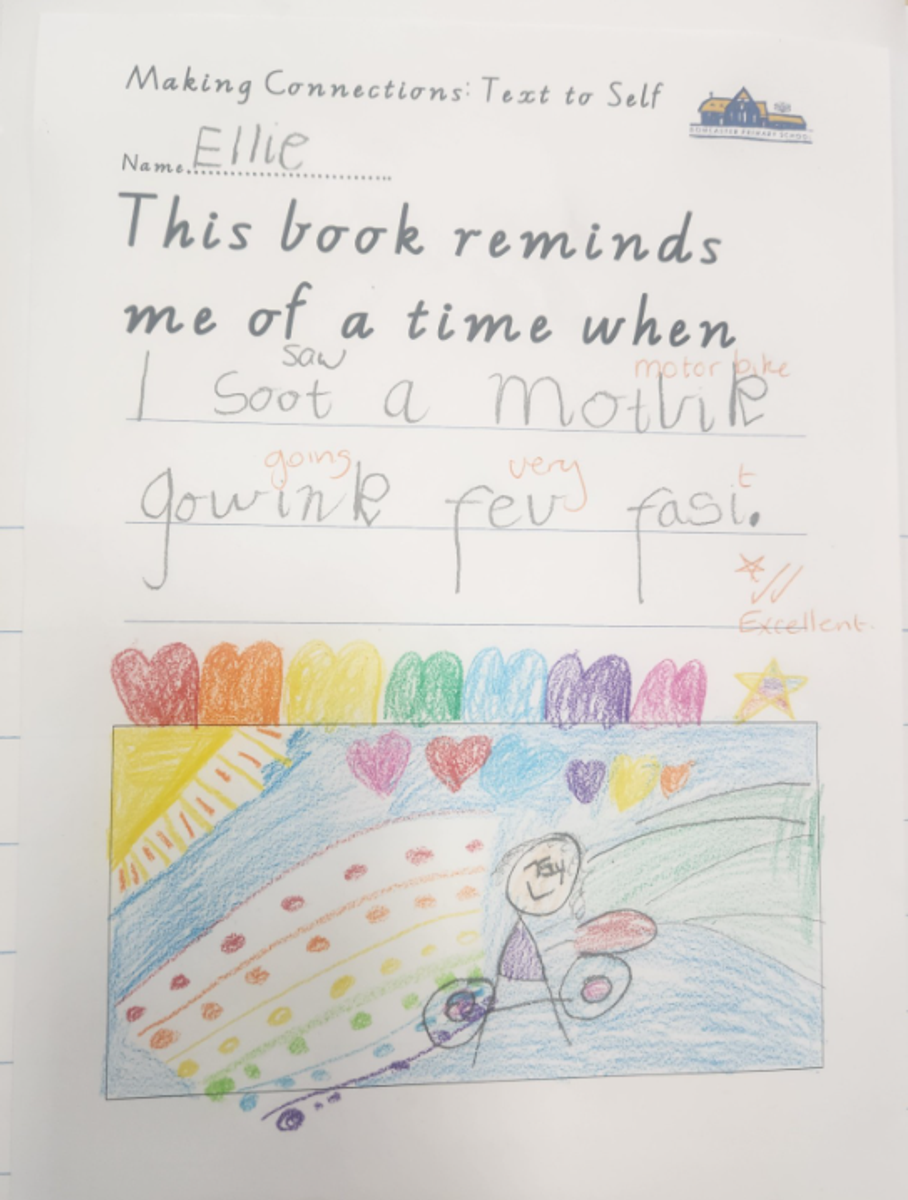 Making Connections: Text to Self
DONCASTER PRIMARY SCHOOL
Name Ellie
This book reminds
me of a time when
saw motor bike
I soot a motbik
going very t
gowink fev fasi.
Excellent.